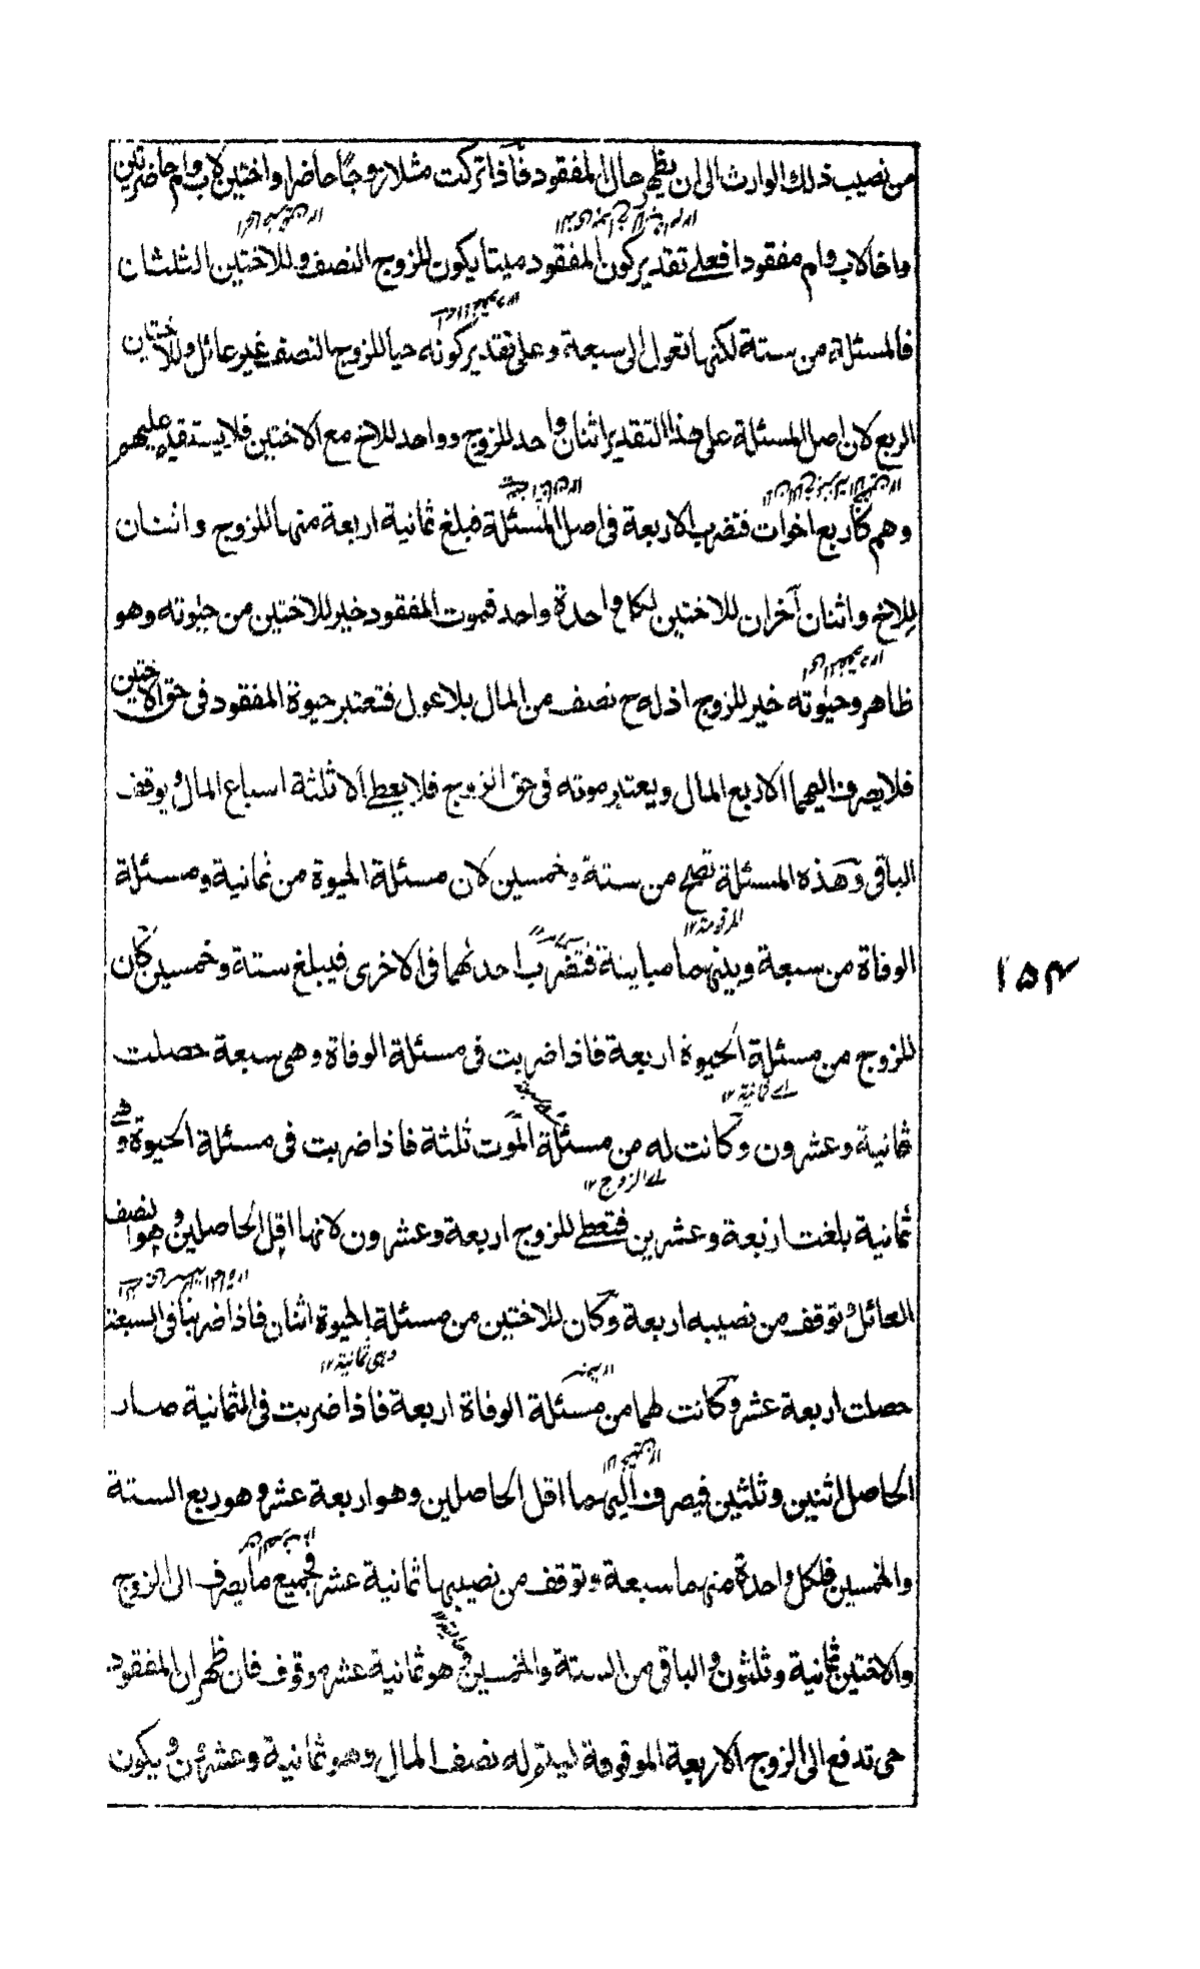 من نصيب ذلك الوارث الى ان يظهر حال المفقود فاذا تركت مثلا زوجا حاضرا واختين لاب وام حاضرتين
واخا لاب وام مفقودا فعلى تقدير كون المفقود ميتا يكون للزوج النصف وللاختين الثلثان
فالمسئلة من ستة لكنها تعول الى سبعة وعلى تقدير كونه حيا للزوج النصف غير عائل وللاختين
الربع لان اصل المسئلة على هذا التقدير اثنان واحد للزوج وواحد للاخ مع الاختين فلا يستقيم عليهم
وهم كاربع اخوات فتضرب الاربعة فى اصل المسئلة فبلغ ثمانية اربعة منها للزوج واثنان
للاخ واثنان آخران للاختين لكل واحدة واحد فموت المفقود خير للاختين من حيوته وهو
ظاهر وحيوته خير للزوج اذ له ح نصف من المال بلا عول فتعتبر حيوة المفقود فى حق الاختين
فلا يصرف اليهما الا ربع المال ويعتبر موته فى حق الزوج فلا يعطى الا ثلثة اسباع المال ويوقف
الباقى وهذه المسئلة تصح من ستة وخمسين لان مسئلة الحيوة من ثمانية ومسئلة
المرقومة ١٢
الوفاة من سبعة وبينهما مباينة فتضرب احدىهما فى الاخرى فيبلغ ستة وخمسين كان
١٥٤
للزوج من مسئلة الحيوة اربعة فاذا ضربت فى مسئلة الوفاة وهى سبعة حصلت
اے ثمانية ١٢
ثمانية وعشرون وكانت له من مسئلة الموت ثلثة فاذا ضربت فى مسئلة الحيوة وهى
اے الزوج ١٢
ثمانية بلغت اربعة وعشرين فتعطى للزوج اربعة وعشرون لانها اقل الحاصلين وهو النصف
العائل وتوقف من نصيبه اربعة وكان للاختين من مسئلة الحيوة اثنان فاذا ضربنا فى السبعة
وهى ثمانية ١٢
حصلت اربعة عشر وكانت لهما من مسئلة الوفاة اربعة فاذا ضربت فى الثمانية صار
الحاصل اثنين وثلثين فيصرف اليهما اقل الحاصلين وهو اربعة عشر وهو ربع الستة
والخمسين فلكل واحدة منهما سبعة وتوقف من نصيبها ثمانية عشر فجميع ما يصرف الى الزوج
والاختين ثمانية وثلثون والباقى من الستة والخمسين هو ثمانية عشر موقوف فان ظهر ان المفقود
حى تدفع الى الزوج الاربعة الموقوفة ليتم له نصف المال وهو ثمانية وعشرون ويكون